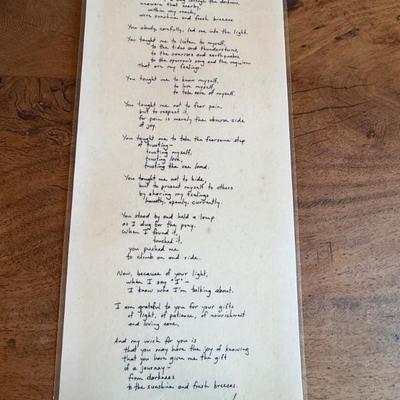 through the darkness,
unaware that nearby,
within my reach,
were sunshine and fresh breezes.
You slowly, carefully, led me into the light.
You taught me to listen to myself,
to the tides and thunderstorms,
to the and earthquakes,
to the sparrow's song and the requiem
that are my feelings.
You taught me to know myself,
to love myself,
to take care of myself.
You taught me not to fear pain,
but to respect it,
for pain is merely the obverse side
of joy.
You taught me to take the fearsome step
of trusting—
trusting myself,
trusting love,
trusting the one loved.
You taught me not to hide,
but to present myself to others
by sharing my feelings
honestly, openly, currently.
You stood by and held a lamp
as I dug for the pony.
When I found it,
touched it,
you pushed me
to climb on and ride.
Now, because of your light,
when I say "I"—
I know who I'm talking about.
I am grateful to you for your gifts
of light, of patience, of nourishment
and loving care,
And my wish for you is
that you may have the joy of knowing
that you have given me the gift
of a journey—
from darkness
to the sunshine and fresh breezes.